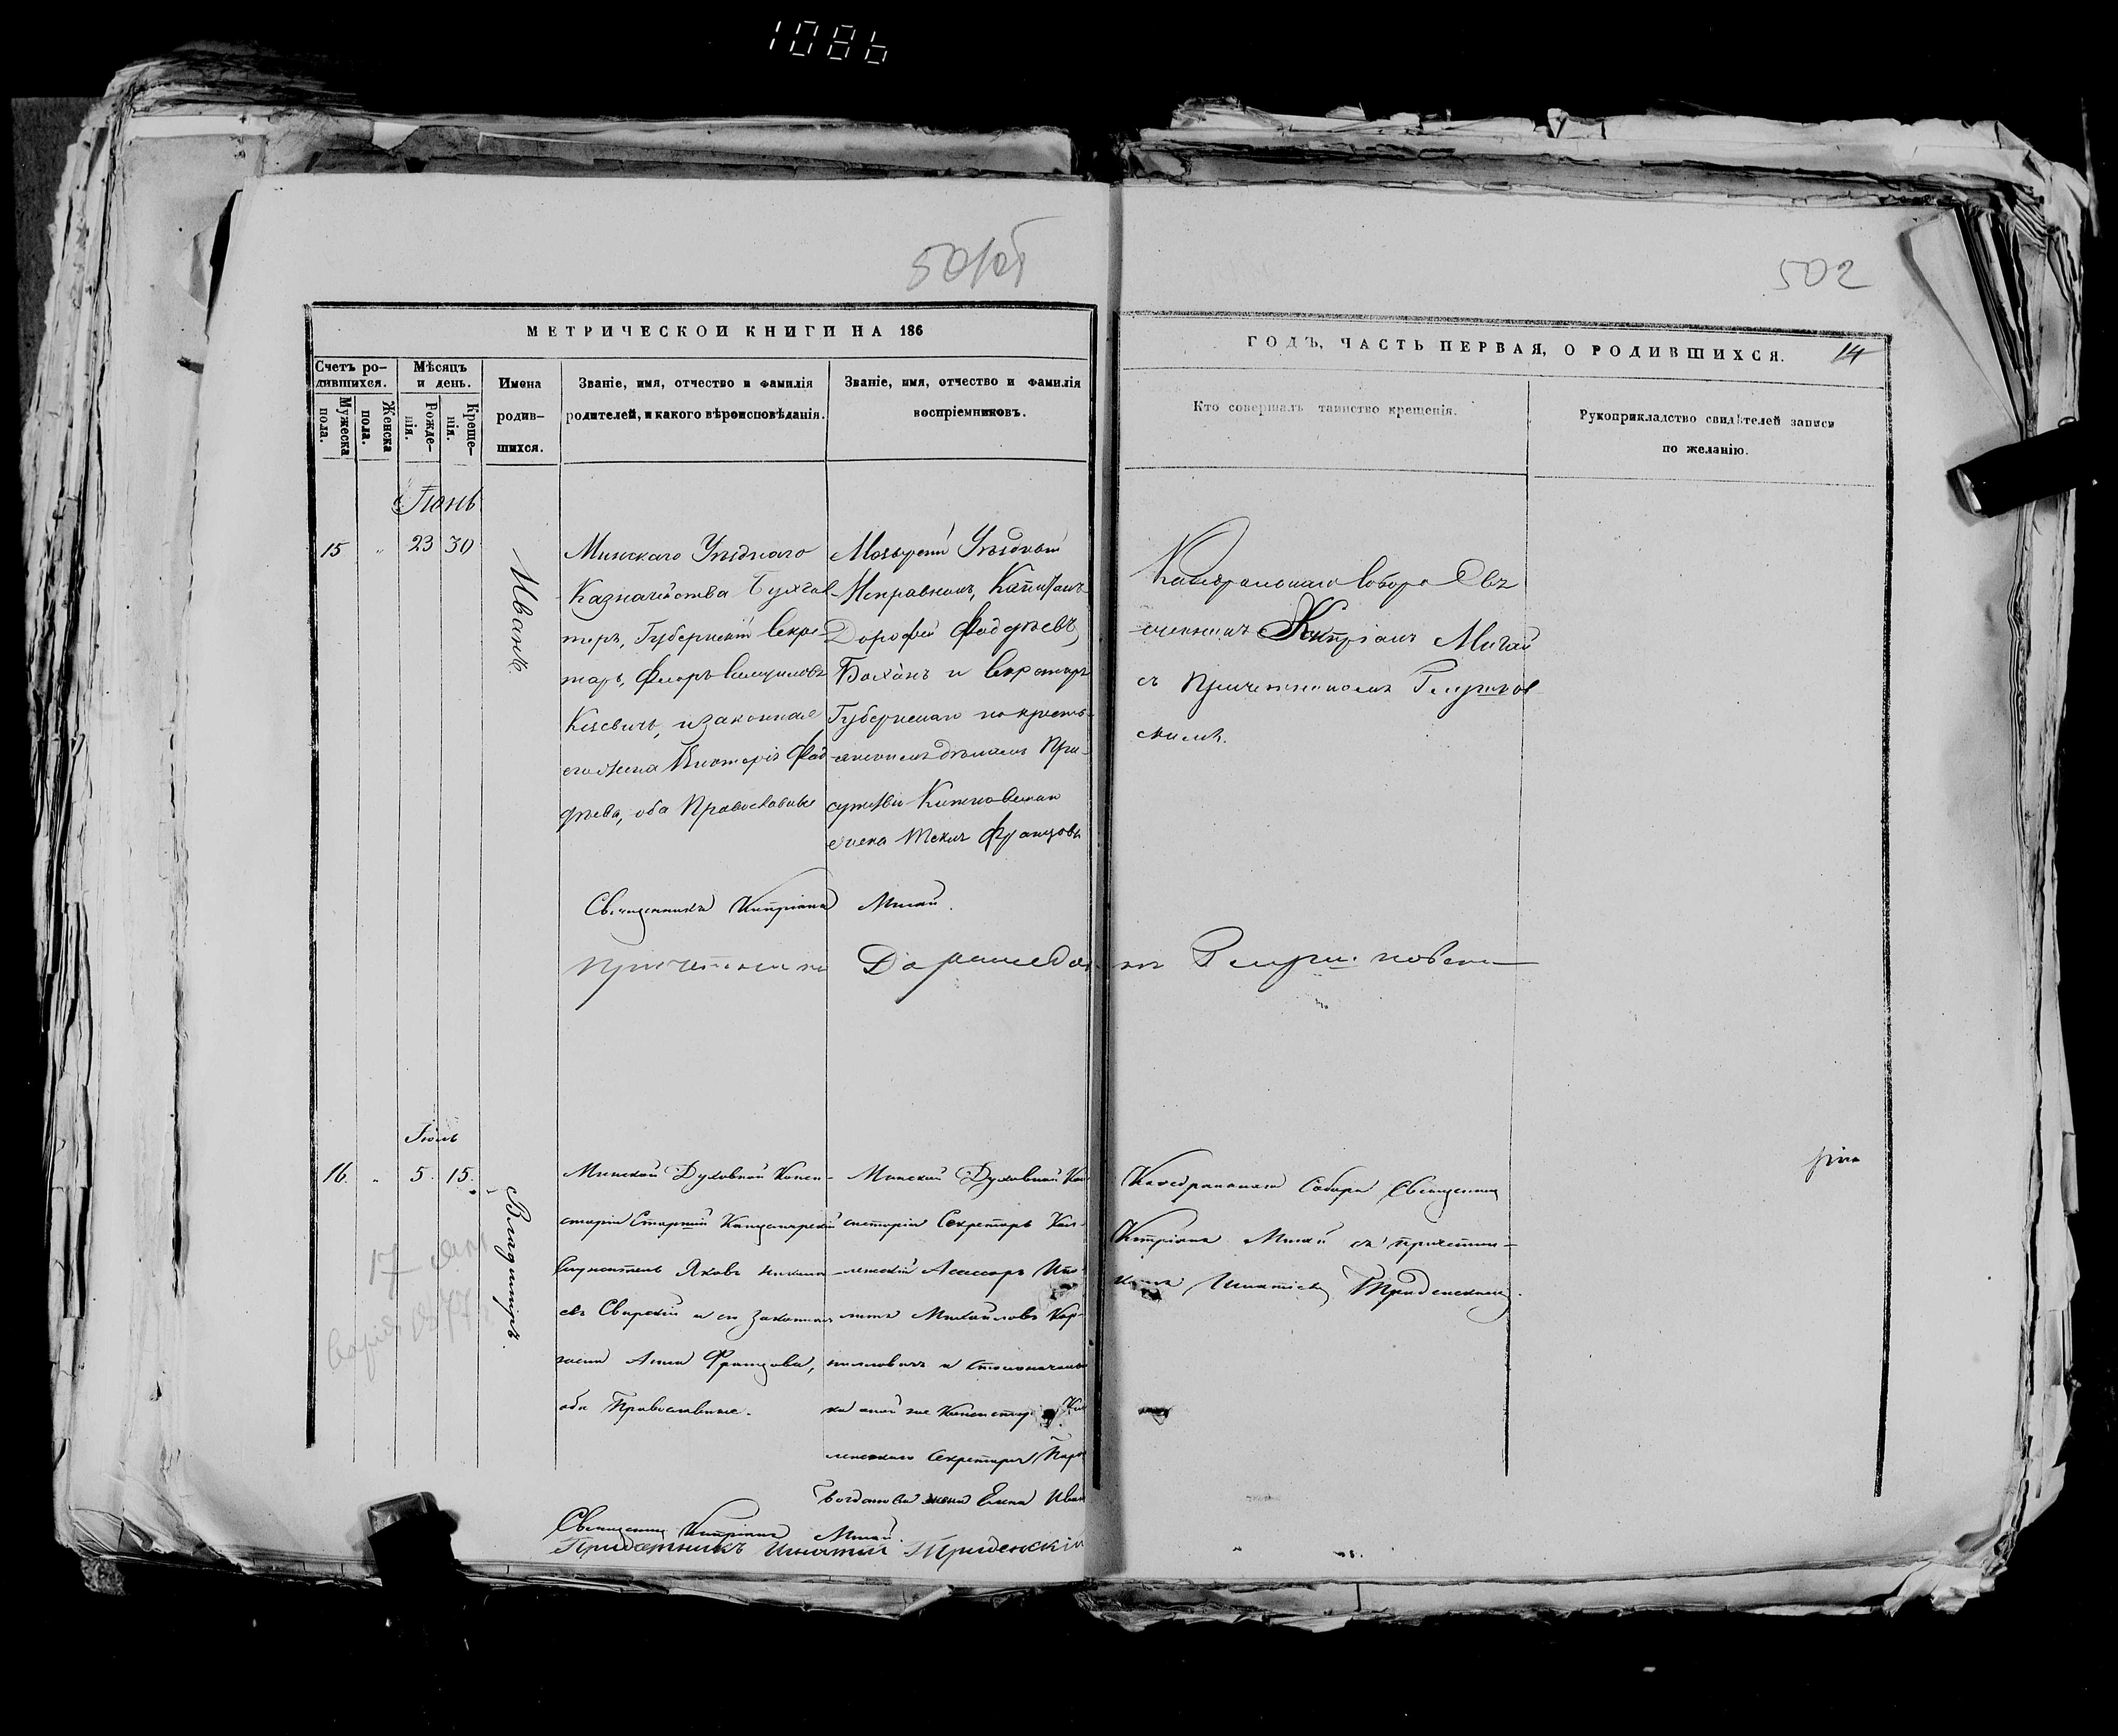 1086
501об
502
МЕТРИЧЕСКОЙ КНИГИ НА 186
ГОДЪ, ЧАСТЬ ПЕРВАЯ, О РОДИВШИХСЯ.
14
Счетъ ро-
дившихся.
Мужеска
пола.
Женска
пола.
Мѣсяцъ
и день.
Рожде-
нія.
Креще-
нія.
Имена
родив-
шихся.
Званіе, имя, отчество и фамилія
родителей, и какого вѣроисповѣданія.
Званіе, имя, отчество и фамилія
воспріемниковъ.
Кто совершалъ таинство крещенія.
Рукоприкладство свидѣтелей записи
по желанію.
Іюнь
15 „ 23 30
Иванъ
Минскаго Уѣзднаго
Казначейства Бухгал-
теръ, Губернскій Секре-
тарь, Флоръ
Кисевичъ, и законная
его жена Викторія Фад-
дѣева, оба Православные
Мозырскій Уѣздный
Исправникъ, Капитанъ
Дорофей Фаддѣевъ
Боханъ и Секретаря
Губернскаго по кресть-
янскимъ дѣламъ При-
сутствія
жена Текля Францова
Каѳедральнаго Собора Свя-
щенникъ Кипріанъ Мигай
съ Причетникомъ
скимъ.
Священникъ Кипріанъ Мигай.
Причетникъ
Іюль
16. „ 5. 15.
Владиміръ.
Минской Духовной Конси-
сторіи Старшій Канцелярскій
Служитель Яковъ
въ Свирскій и его законная
жена Анна Францова,
оба Православные.
Минской Духовной Кон-
систоріи Секретарь Кол-
лежскій Асессоръ Ипо-
литъ Михайловъ Кор-
и Столоначаль-
ка оной же Консисторіи
лежскаго Секретаря
Богданова жена Елена Иван
Каѳедральнаго Собора Священникъ
Кипріанъ Мигай съ причетни-
комъ Игнатіемъ
Священникъ Кипріанъ Мигай.
Игнатій